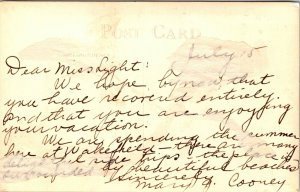 POST CARD
July 5
Dear Miss Light:
We hope by now that
you have recovered entirely
and that you are enjoying
your vacation.
We are spending the summer
here at Wakefield - there are many
side trips - the place is
surrounded by beautiful beaches
Sincerely,
Mary A. Cooney